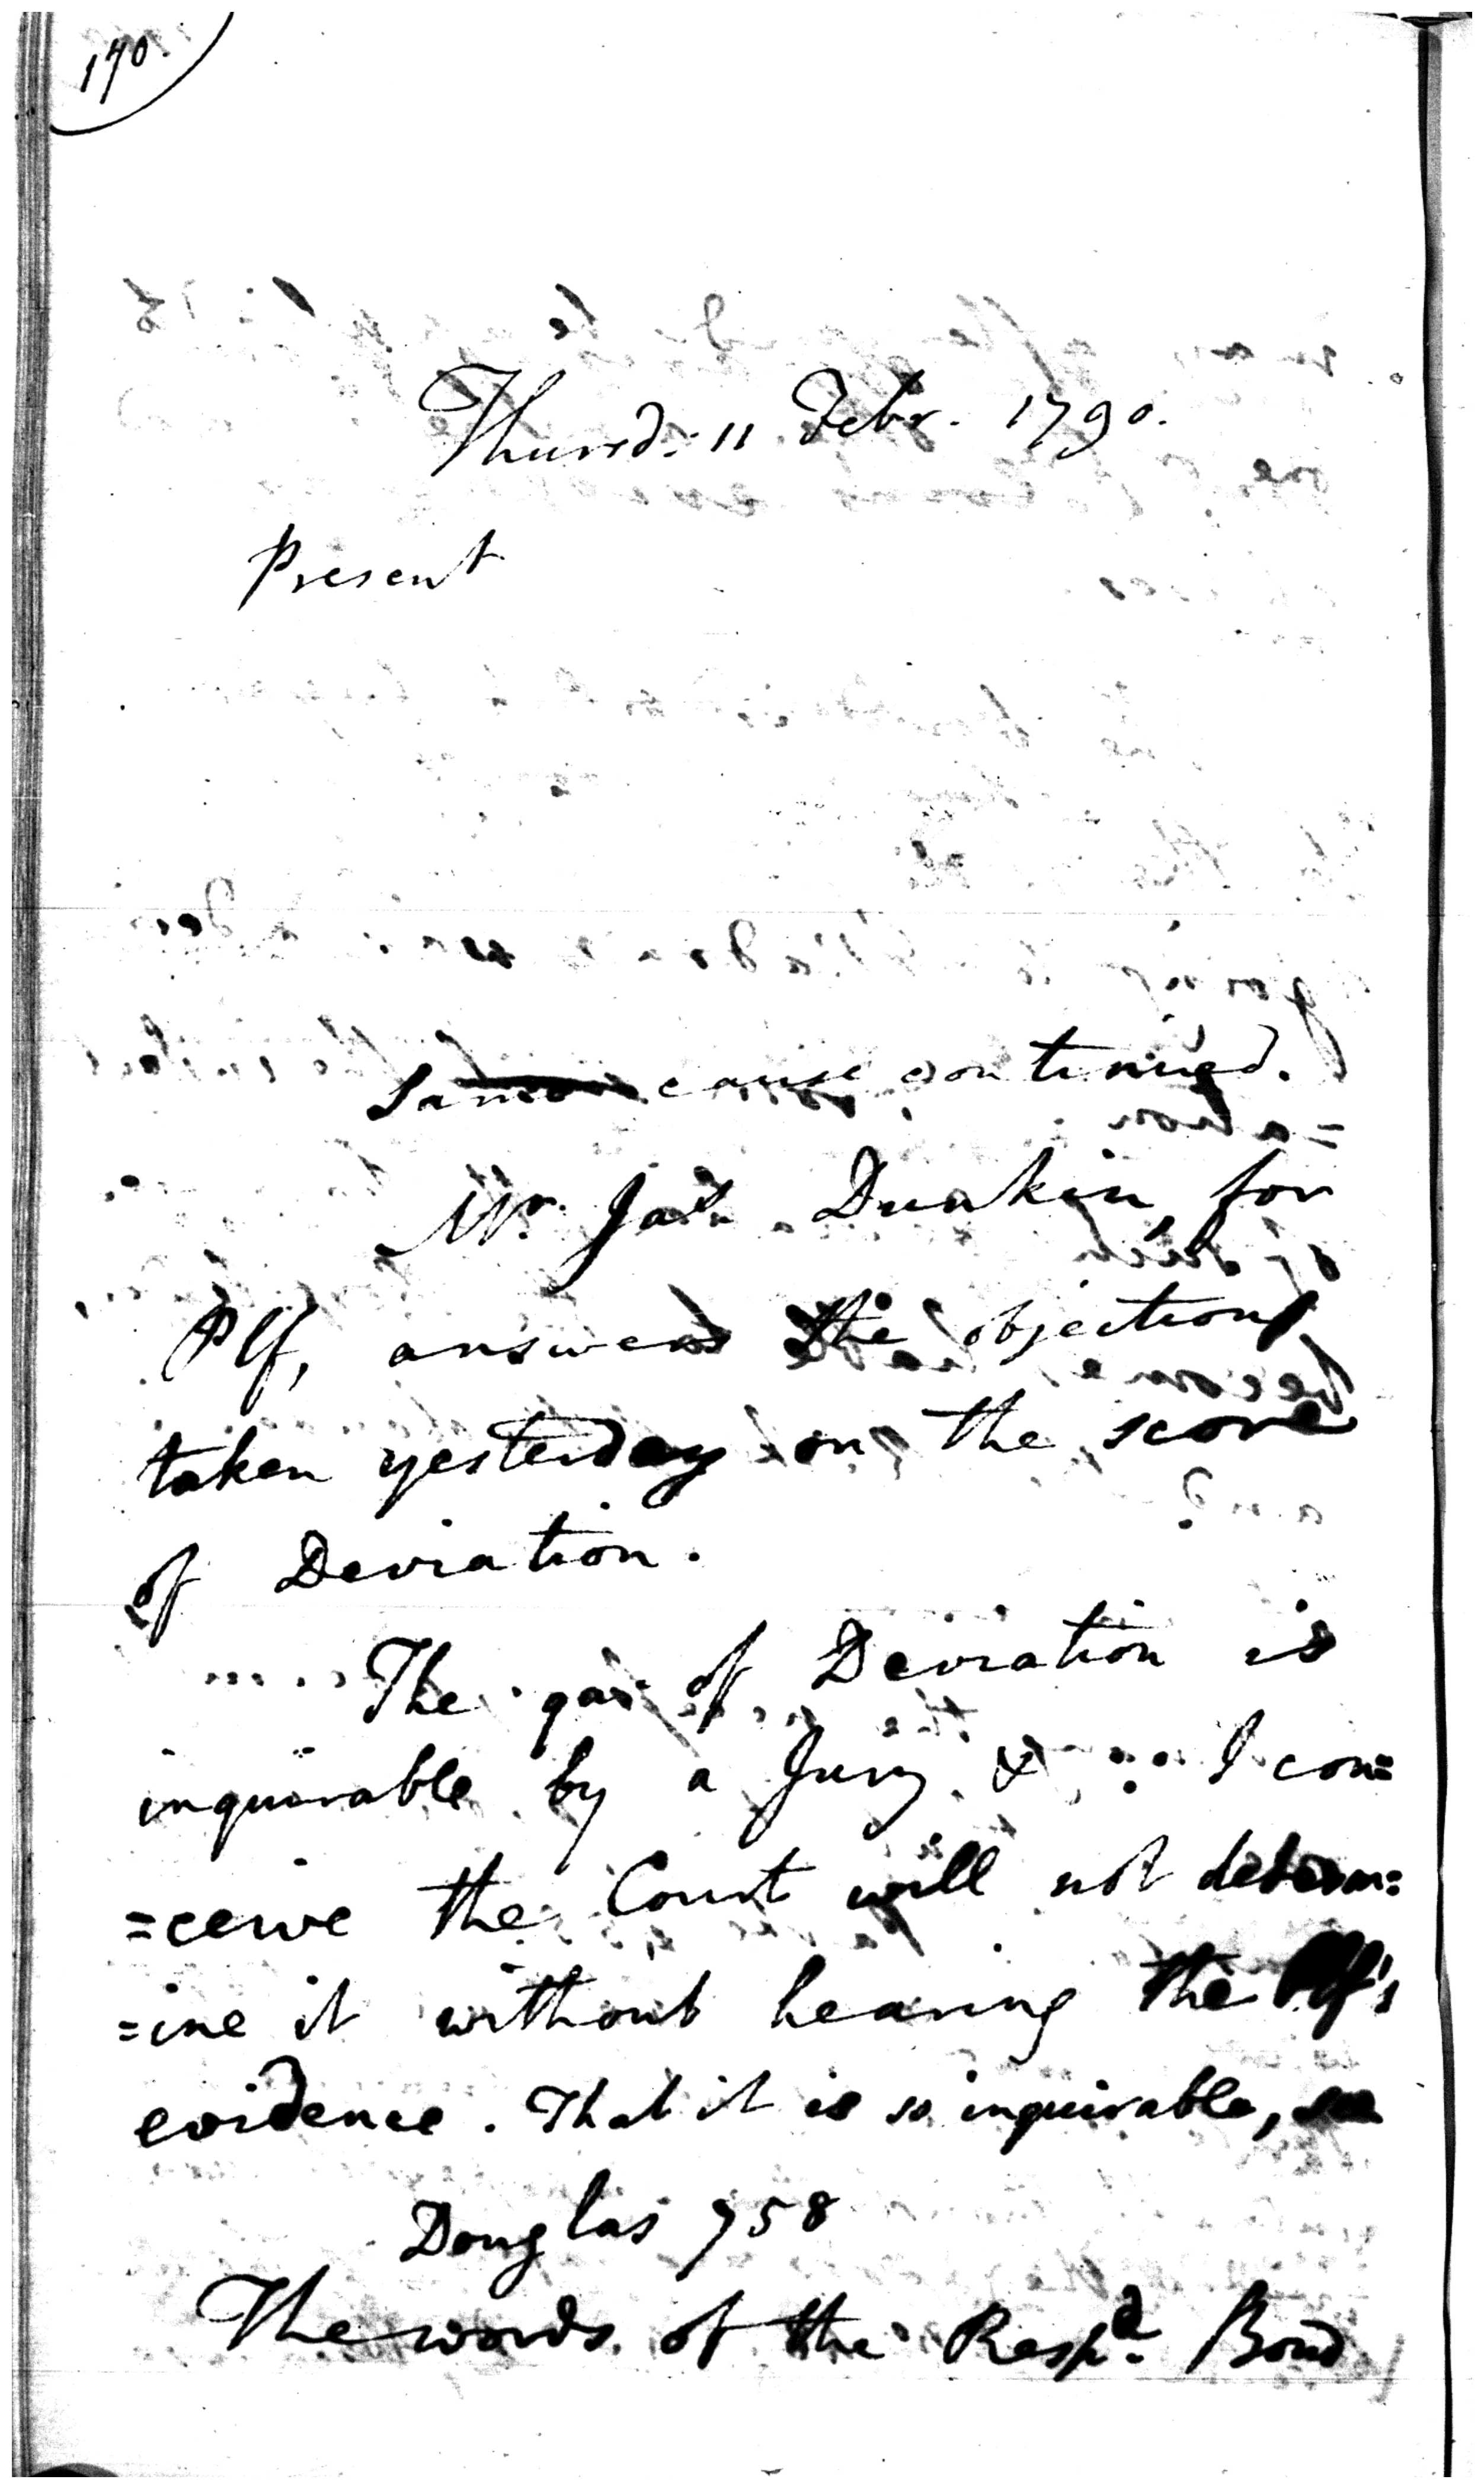 170.
Thursd: 11 Febr. 1790.
Present
Same cause continued.
Mr. Jas. Dunkin, for
Plf, answers the objections
taken yesterday on the score
of Deviation.
The qn. of Deviation is
inquirable by a Jury & ∵ I con=
=ceive the Court will not determ=
=ine it without hearing the Plf's
evidence. That it is so inquirable, see
Douglas 758
The words of the Respd. Bond